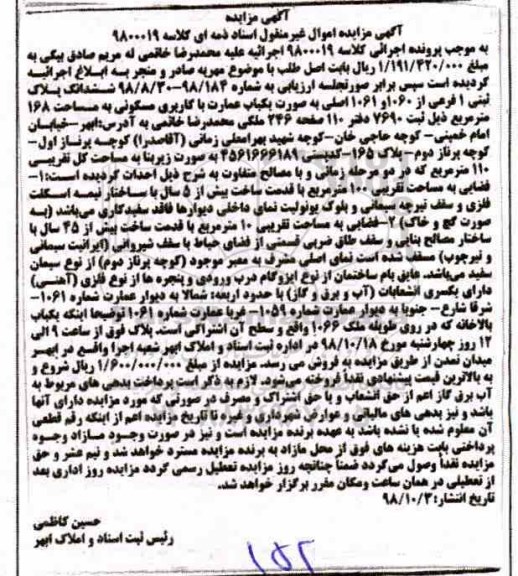 آگهی مزایده
آگهی مزایده اموال غیرمنقول اسناد ذمه ای کلاسه ۹۸۰۰۰۱۹
به موجب پرونده اجرائی کلاسه ۹۸۰۰۰۱۹ اجرائیه علیه محمدرضا خاتمی له مریم صادق بیگی به
مبلغ ۱/۱۹۱/۳۲۰/۰۰۰ ریال بابت اصل طلب با موضوع مهریه صادر و منجر به ابلاغ اجرائیه
گردیده است سپس برابر صورتجلسه ارزیابی به شماره ۹۸/۱۸۴-۹۸/۸/۳۰ ششدانگ پلاک
ثبتی ۱ فرعی از ۱۰۶۰و ۱۰۶۱ اصلی به صورت یکباب عمارت با کاربری مسکونی به مساحت ۱۶۸
مترمربع ذیل ثبت ۷۶۹۰ دفتر ۱۱۰ صفحه ۲۴۶ ملکی محمدرضا خاتمی به آدرس:ابهر-خیابان
امام خمینی- کوچه حاجی خان-کوچه شهید بهرامعلی زمانی (آقاصدرا) کوچه پرناز اول-
کوچه پرناز دوم -پلاک ۱۶۵-کدپستی ۴۵۶۱۶۶۶۱۸۱ به صورت زیربنا به مساحت کل تقریبی
۱۱۰ مترمربع که در دو مرحله زمانی و با مصالح متفاوت به شرح ذیل احداث گردیده است:۱-
فضایی به مساحت تقریبی ۱۰۰ مترمربع با قدمت ساخت بیش از ۵ سال با ساختار نیمه اسکلت
فلزی و سقف تیرچه سیمانی و بلوک یونولیت نمای داخلی دیوارها فاقد سفیدکاری می‌باشد (به
صورت گچ و خاک) ۲-فضایی به مساحت تقریبی ۱۰ مترمربع با قدمت ساخت بیش از ۴۵ سال با
ساختار مصالح بنایی و سقف طاق ضربی قسمتی از فضای حیاط با سقف شیروانی (ایرانیت سیمانی
و تیرچوب) مسقف شده است نمای اصلی مشرف به معبر موجود (کوچه پرناز دوم) از نوع سیمان
سفید می‌باشد. عایق بام ساختمان از نوع ایزوگام درب ورودی و پنجره ها از نوع فلزی (آهنی)
دارای یکسری انشعابات (آب و برق و گاز) با حدود اربعه: شمالا به دیوار عمارت شماره ۱۰۶۱-
شرقا شارع- جنوبا به دیوار عمارت شماره ۱۰۵۹- غربا عمارت شماره ۱۰۶۱ توضیحا اینکه یکباب
بالاخانه که در روی طویله ملک ۱۰۶۶ واقع و سطح آن اشتراکی است. پلاک فوق از ساعت ۹ الی
۱۲ روز چهارشنبه مورخ ۹۸/۱۰/۱۸ در اداره ثبت اسناد و املاک ابهر شعبه اجرا واقع در ابهر
میدان تمدن از طریق مزایده به فروش می رسد. مزایده از مبلغ ۱/۶۰۰/۰۰۰/۰۰۰ ریال شروع و
به بالاترین قیمت پیشنهادی نقداً فروخته می‌شود. لازم به ذکر است پرداخت بدهی های مربوط به
آب برق گاز اعم از حق انشعاب و یا حق اشتراک و مصرف در صورتی که مورد مزایده دارای آنها
باشد و نیز بدهی های مالیاتی و عوارض شهرداری و غیره تا تاریخ مزایده اعم از اینکه رقم قطعی
آن معلوم شده یا نشده باشد به عهده برنده مزایده است و نیز در صورت وجود مازاد وجوه
پرداختی بابت هزینه های فوق از محل مازاد به برنده مزایده مسترد خواهد شد و نیم عشر و حق
مزایده نقداً وصول می‌گردد ضمناً چنانچه روز مزایده تعطیل رسمی گردد مزایده روز اداری بعد
از تعطیلی در همان ساعت ومکان مقرر برگزار خواهد شد.
تاریخ انتشار:۹۸/۱۰/۳
حسین کاظمی
رئیس ثبت اسناد و املاک ابهر